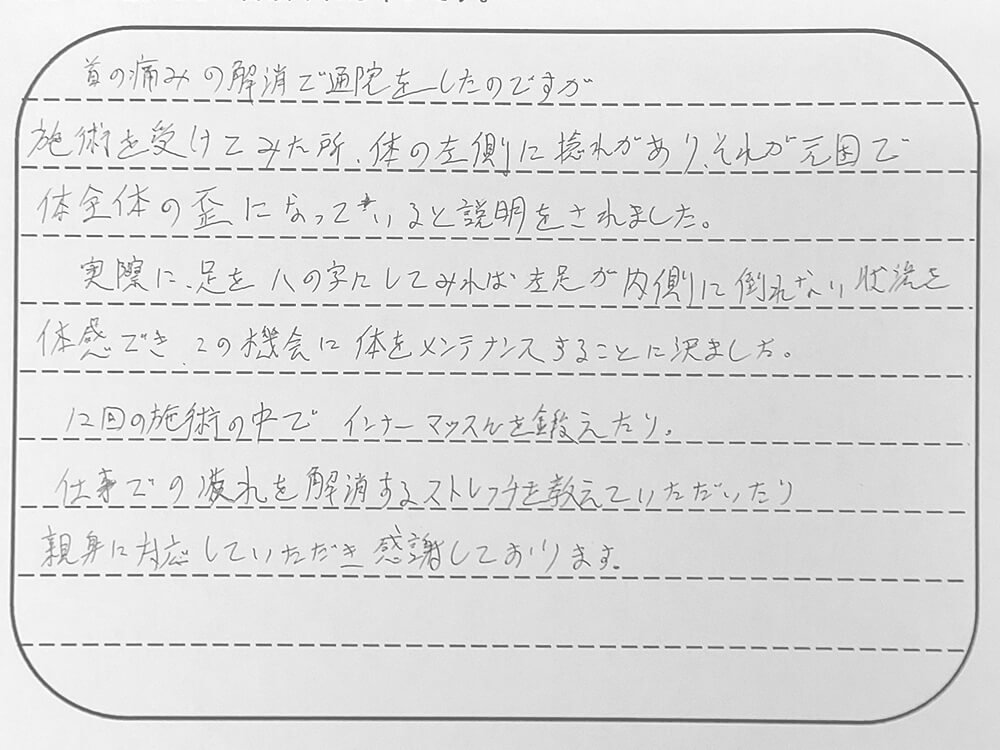 首の痛みの解消で通院をしたのですが
施術を受けてみた所、体の左側に捻れがあり、それが元因で
体全体の歪になっていると説明をされました。
実際に、足を八の字にしてみれば左足が内側に倒れない状況を
体感でき、この機会に体をメンテナンスすることに決ました。
12回の施術の中で インナーマッスルを鍛えたり。
仕事での疲れを解消するストレッチを教えていただいたり
親身に対応していただき感謝しております。